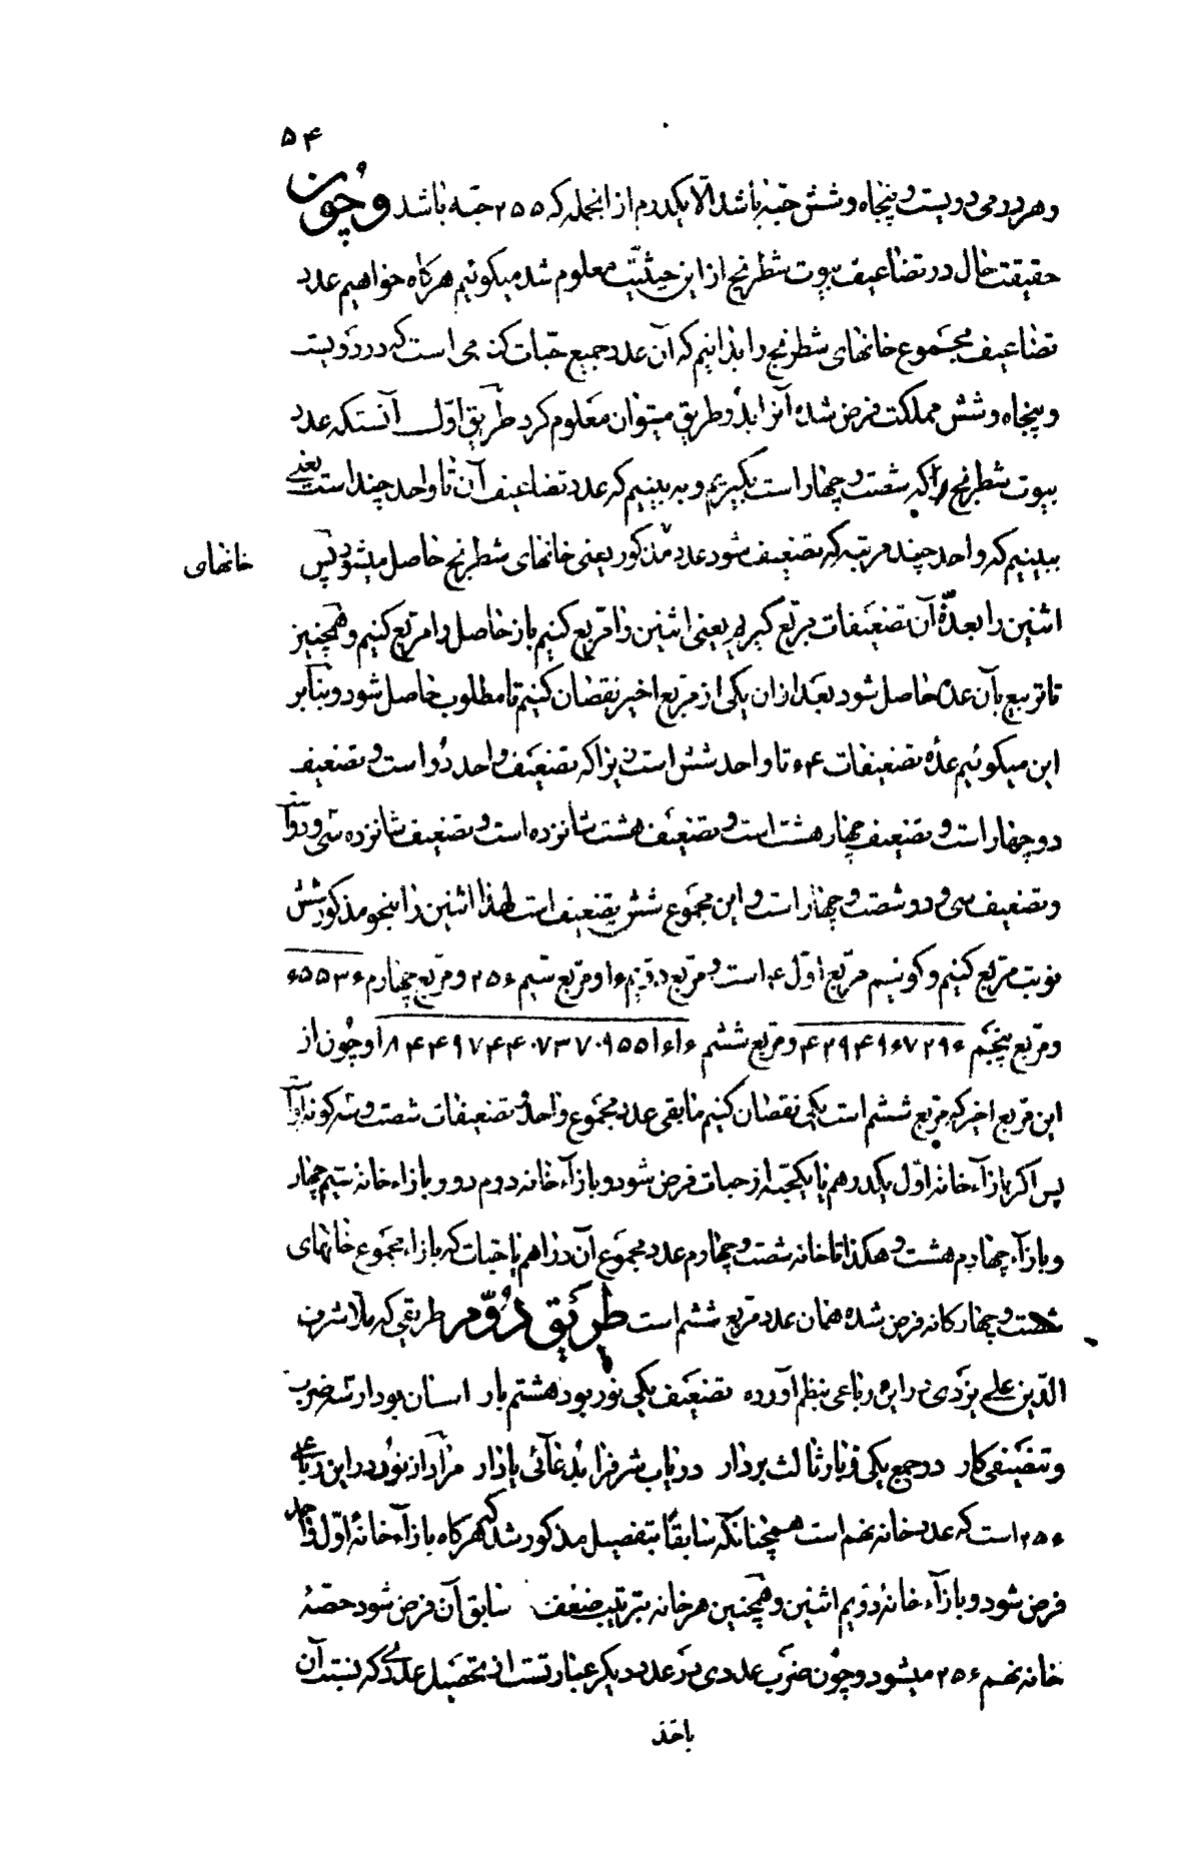 ۵۴
وهر درمی دویست و پنجاه و شش حبّه باشد الّا یکدرم از انجمله که ۲۵۵ حبّه باشد وچون
حقیقت حال در تضاعیف بیوت شطرنج از این حیثیّت معلوم شد میکوئیم هرکاه خواهیم عدد
تضاعیف مجموع خانهای شطرنج را بدانیم که آن عدد جمیع حبّات کندمی است که در دویست
و پنجاه و شش مملکت فرض شده آنرا بدو طریق میتوان معلوم کرد طریق اوّل آنستکه عدد
بیوت شطرنج را که شصت و چهار است بکیریم و به بینیم که عدد تضاعیف آن تا واحد چند است یعنی
ببینیم که واحد چند مرتبه که تضعیف شود عدد مذکور یعنی خانهای شطرنج حاصل میشود پس
خانهای
اثنین را بعدّهٔ آن تضعیفات مربّع کیریم یعنی اثنین را مربع کنیم باز حاصل را مربّع کنیم و همچنین
تا تربیع بآن عدّه حاصل شود بعد از ان یکی از مربع اخیر نقصان کنیم تا مطلوب حاصل شود و بنابر
این میکوئیم عدّه تضعیفات ۶۴ تا واحد شش است زیرا که تضعیف واحد دو است و تضعیف
دو چهار است و تضعیف چهار هشت است و تضعیف هشت شانزده است و تضعیف شانزده سی و دو است
و تضعیف سی و دو شصت و چهار است و این مجموع شش تضعیف است لهذا اثنین را بنحو مذکور شش
نوبت مربّع کنیم و کوئیم مربّع اوّل ۴ است و مربّع دوّیم ۱۶ و مربّع سیم ۲۵۶ و مربّع چهارم ۶۵۵۳۶
و مربّع پنجم ۴۲۹۴۹۶۷۲۹۶ و مربع ششم ۱۸۴۴۶۷۴۴۰۷۳۷۰۹۵۵۱۶۱۶ و چون از
این مربع اخیر که مربّع ششم است یکی نقصان کنیم مابقی عدد مجموع واحد و تضعیفات شصت و سه کونه است
پس اکر بازآء خانه اوّل یکدرهم یا یکحبّه از حبات فرض شود و بازآء خانه دوم دو و بازاء خانه سیم چهار
و بازآء چهارم هشت و هکذا تا خانه شصت و چهارم عدد مجموع آن دراهم یا حبات که بازاء مجموع خانهای
شصت و چهارکانه فرض شده همان عدد مربّع ششم است طریق دوّم طریقی که ملّا شرف
الدّین علی یزدی در این رباعی بنظم آورده تضعیف یکی نور بود هشتم بار اسنان بود ار سه ضرب
و تضعیفی کار در جمع یکی و باز ثالث بردار دریاب شرف زابدغائی بازار مراد از نور در این رباعی
۲۵۶ است که عدد خانه نهم است همچنانکه سابقًا بتفصیل مذکور شد که هرکاه بازآء خانهٔ اوّل واحد
فرض شود و بازآء خانهٔ دوّیم اثنین و همچنین هر خانه بترتیب ضعف سابق آن فرض شود حصّهٔ
خانه نهم ۲۵۶ میشود و چون ضرب عددی در عدد دیکر عبارتست از تحصیل عددی که نسبت آن
باحد